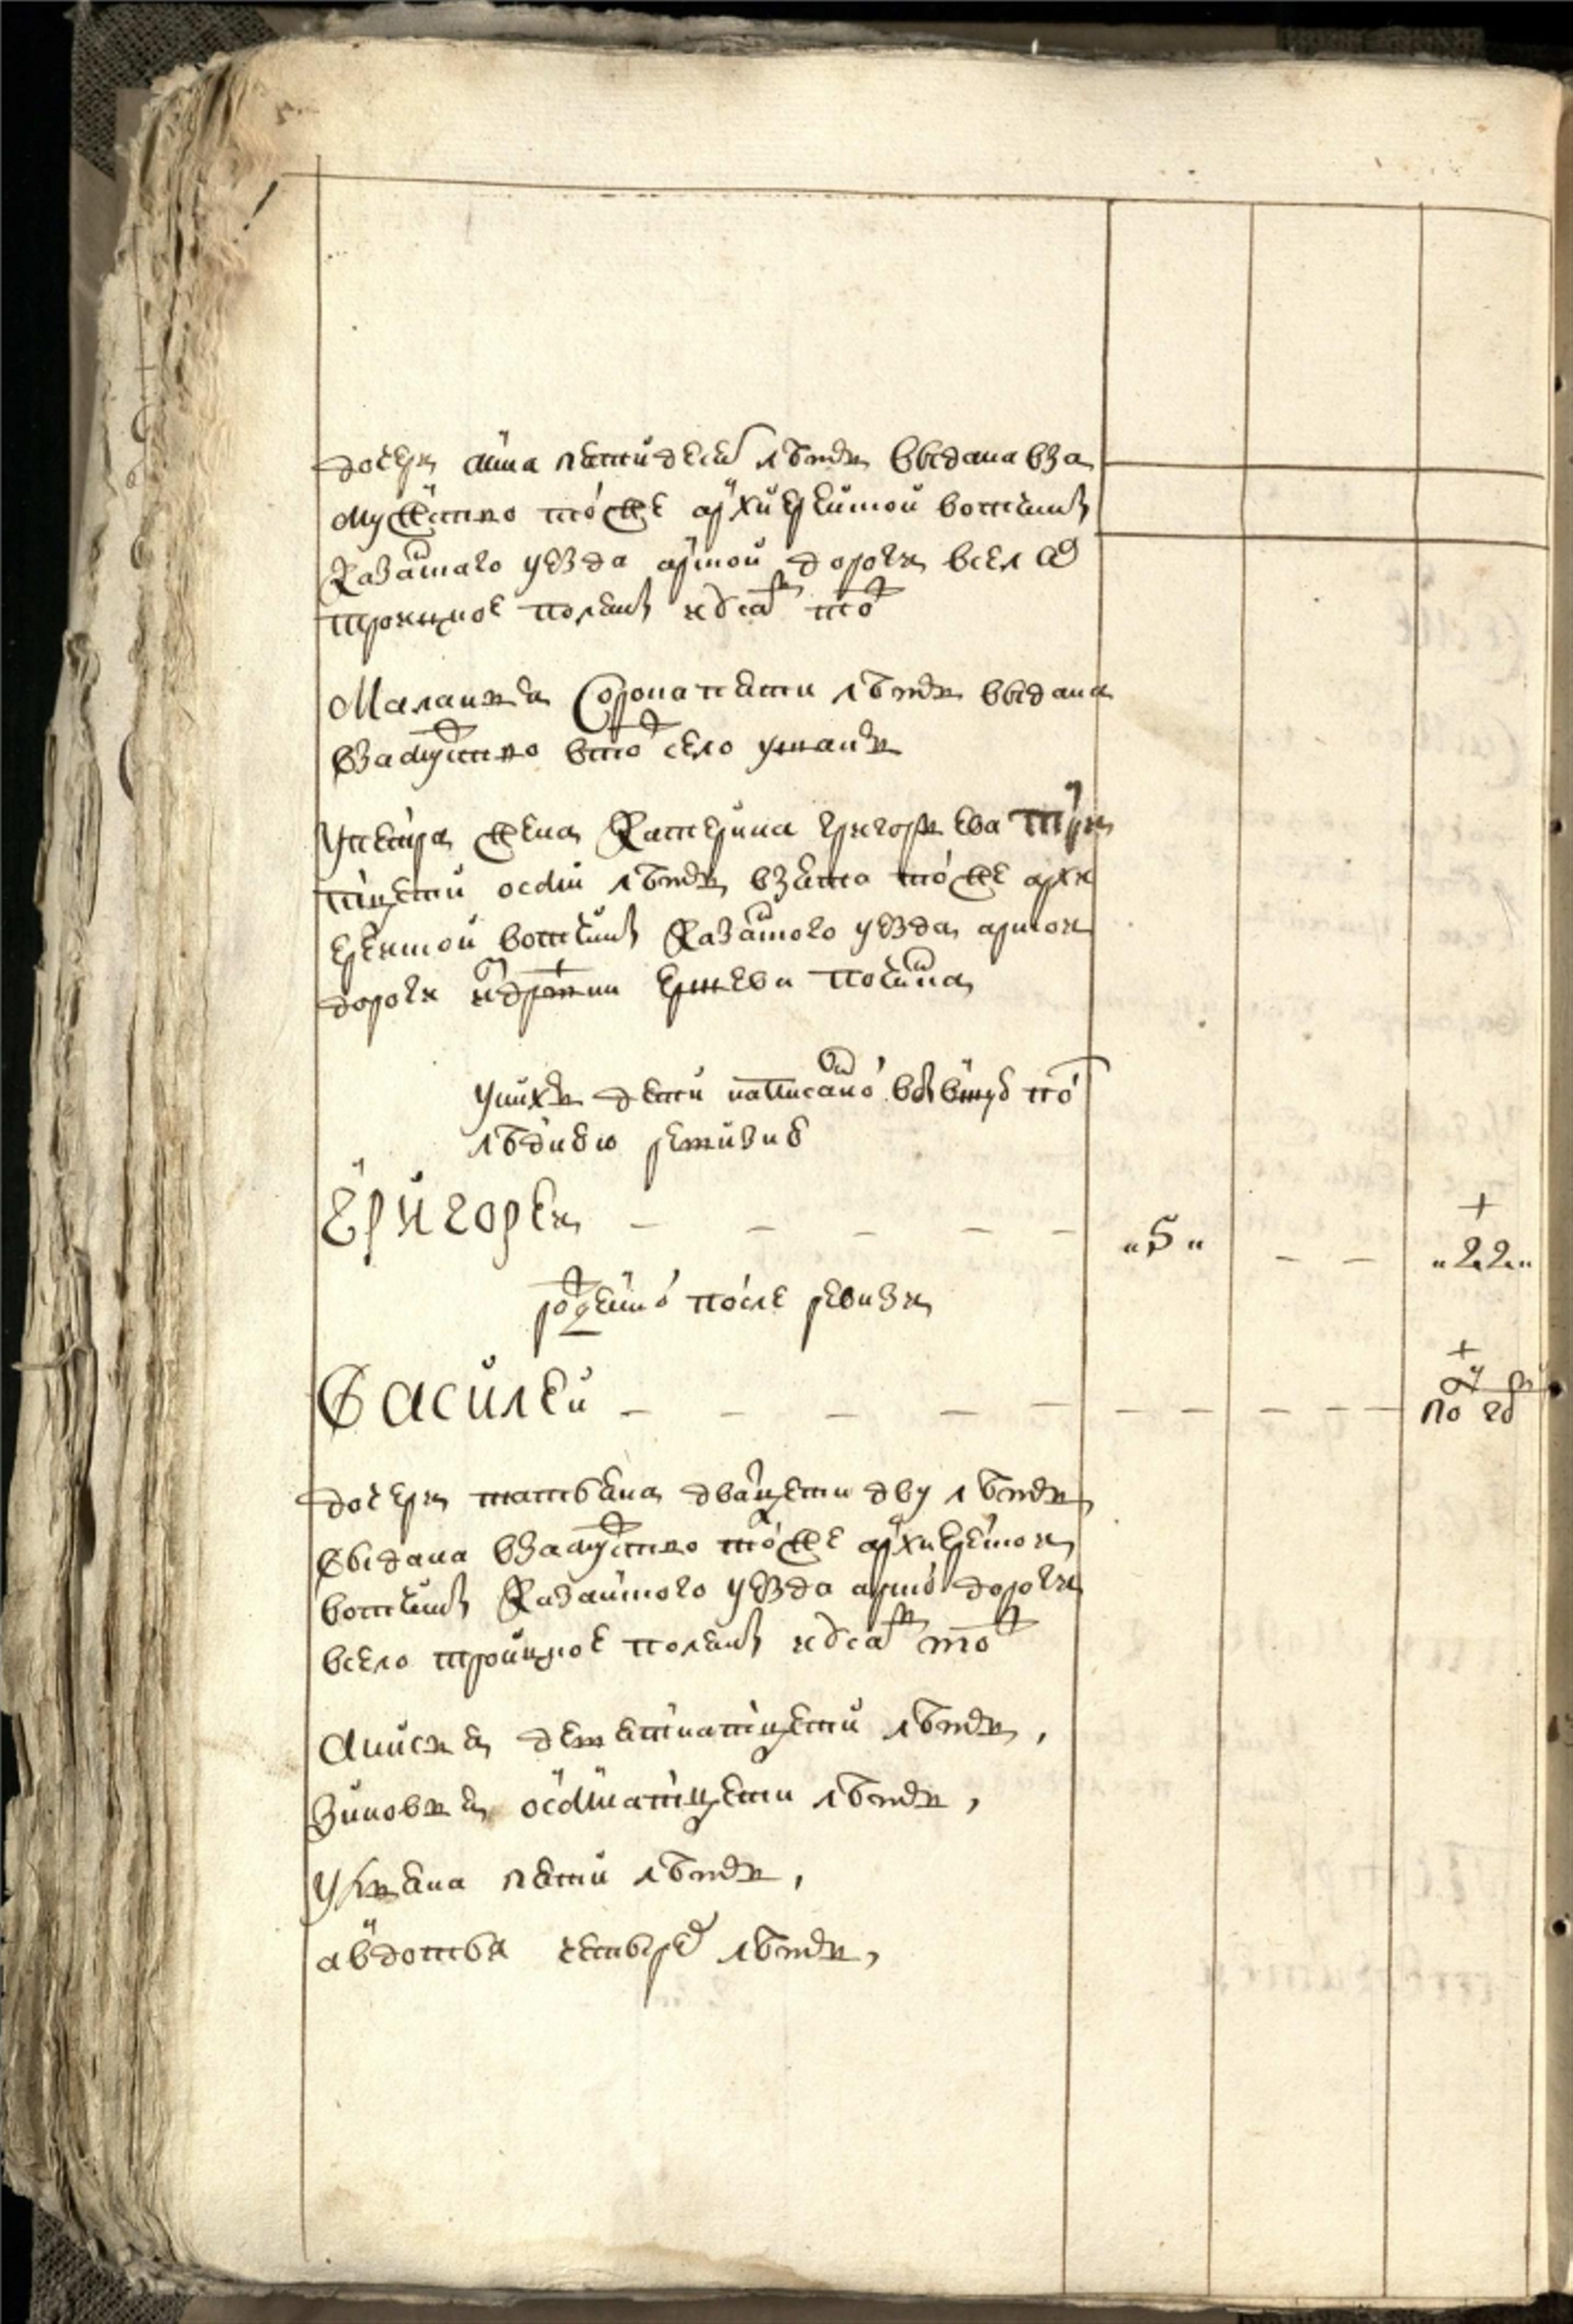 дочерь анна пятидесят летъ выдана вза
мужество тоейже архиерейской вотчины
казанского уезда арской дороги в село
троицкое поляны идеж тож
Маланья Сорока пяти летъ выдана
взамужство втож село
у петра жена катерина григорьева три
тцети осми летъ взята тоейже архи
ерейской вотчины казанского уезда арской
дороги издеревни починка
у нихъ дети написанной впрежную по
следнюю ревизию
Григорей - - - - - „5„ - - „22„
рожденной после ревизии
Василей - - - - - - - - - - по го
дочерь татьяна дватцети дву летъ
выдана взамужство тоейже архиерейской
вотчины казанского уезда арской дороги
всело троицкое поляны идеж тож
Анисья девятнатцети летъ,
Зиновья осмнатцети летъ,
Ульяна пяти летъ,
авдотья четырех летъ,